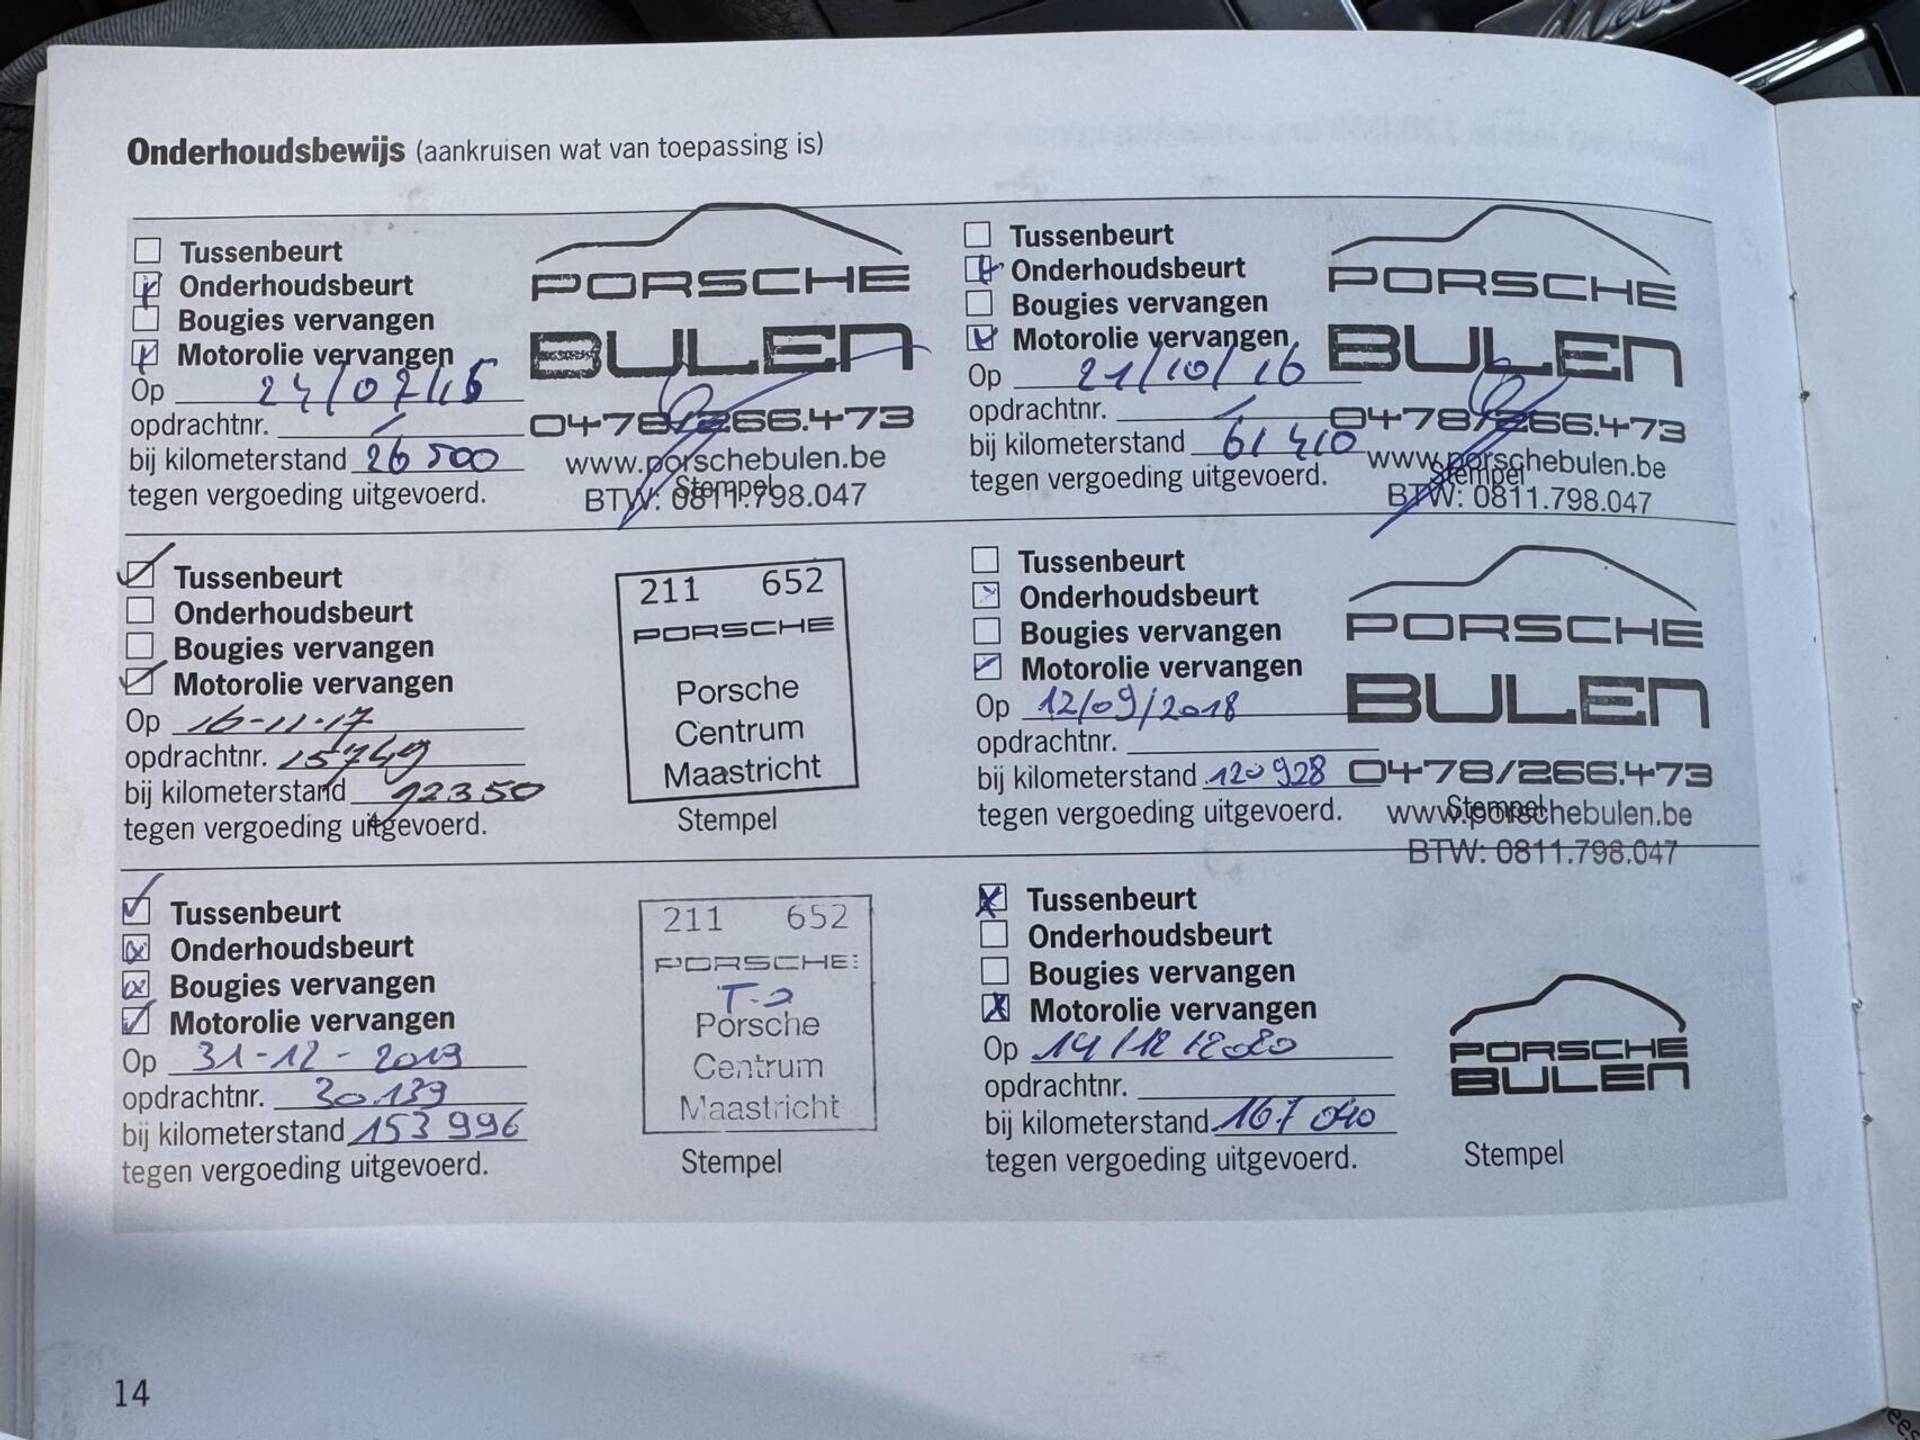 Onderhoudsbewijs (aankruisen wat van toepassing is)
Tussenbeurt
Onderhoudsbeurt
Bougies vervangen
Motorolie vervangen
Op
opdrachtnr. /
bij kilometerstand 26 500
tegen vergoeding uitgevoerd.
PORSCHE
BULEN
0478/266.473
www.porschebulen.be
Stempel
BTW: 0811.798.047
Tussenbeurt
Onderhoudsbeurt
Bougies vervangen
Motorolie vervangen
Op 21/10/16
opdrachtnr. /
bij kilometerstand 61 410
tegen vergoeding uitgevoerd.
PORSCHE
BULEN
0478/266.473
www.porschebulen.be
Stempel
BTW: 0811.798.047
Tussenbeurt
Onderhoudsbeurt
Bougies vervangen
Motorolie vervangen
Op 16-11-17
opdrachtnr. 15749
bij kilometerstand 92350
tegen vergoeding uitgevoerd.
211 652
PORSCHE
Porsche
Centrum
Maastricht
Stempel
Tussenbeurt
Onderhoudsbeurt
Bougies vervangen
Motorolie vervangen
Op 12/09/2018
opdrachtnr.
bij kilometerstand 120 928
tegen vergoeding uitgevoerd.
PORSCHE
BULEN
0478/266.473
Stempel
www.porschebulen.be
BTW: 0811.798.047
Tussenbeurt
Onderhoudsbeurt
Bougies vervangen
Motorolie vervangen
Op 31-12-2019
opdrachtnr. 30139
bij kilometerstand 153 996
tegen vergoeding uitgevoerd.
211 652
PORSCHE
Porsche
Centrum
Maastricht
Stempel
Tussenbeurt
Onderhoudsbeurt
Bougies vervangen
Motorolie vervangen
Op 14/12/2020
opdrachtnr.
bij kilometerstand 167 040
tegen vergoeding uitgevoerd.
PORSCHE
BULEN
Stempel
14